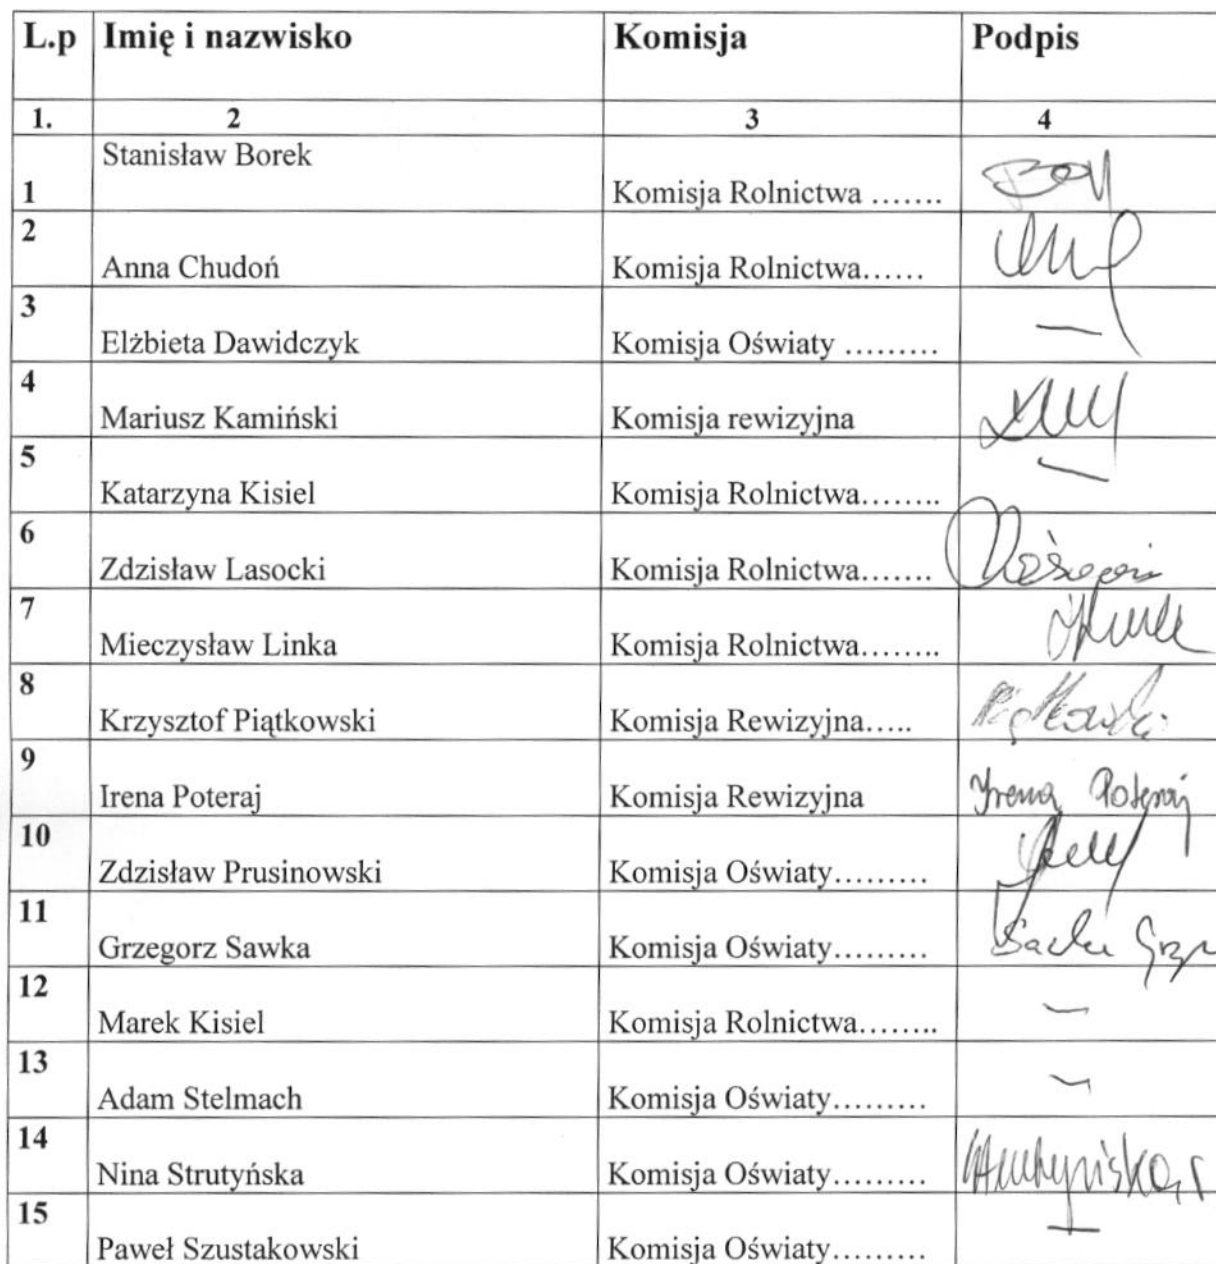 L.p Imię i nazwisko Komisja Podpis
1. 2 3 4
1 Stanisław Borek Komisja Rolnictwa .......
2 Anna Chudoń Komisja Rolnictwa......
3 Elżbieta Dawidczyk Komisja Oświaty ......... —
4 Mariusz Kamiński Komisja rewizyjna
5 Katarzyna Kisiel Komisja Rolnictwa........ —
6 Zdzisław Lasocki Komisja Rolnictwa.......
7 Mieczysław Linka Komisja Rolnictwa........
8 Krzysztof Piątkowski Komisja Rewizyjna..... Piątkowski
9 Irena Poteraj Komisja Rewizyjna Irena Poteraj
10 Zdzisław Prusinowski Komisja Oświaty.........
11 Grzegorz Sawka Komisja Oświaty.........
12 Marek Kisiel Komisja Rolnictwa........ —
13 Adam Stelmach Komisja Oświaty......... —
14 Nina Strutyńska Komisja Oświaty.........
15 Paweł Szustakowski Komisja Oświaty......... —